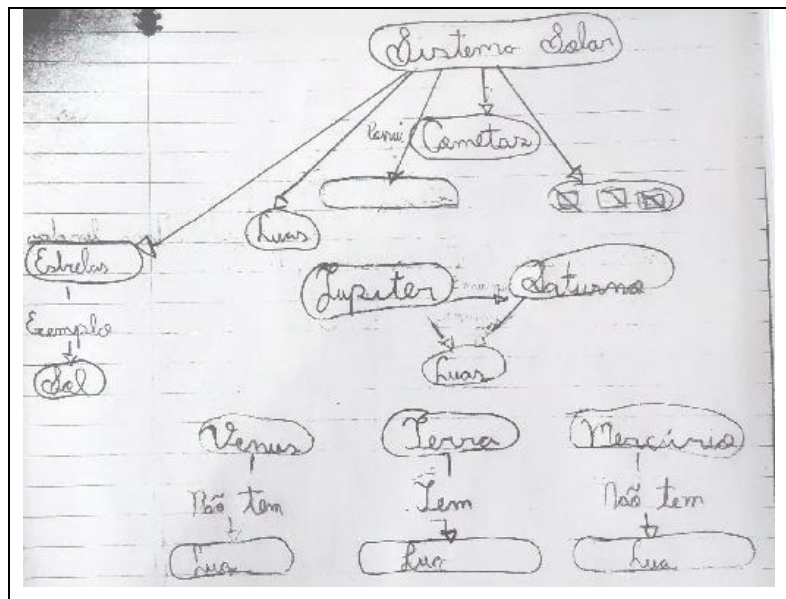 Sistema Solar
Possui
Cometas
Luas
Estrelas
Jupiter
Saturno
Exemplo
Luas
Sol
Venus
Terra
Mercúrio
Não tem
Tem
Não tem
Lua
Lua
Lua